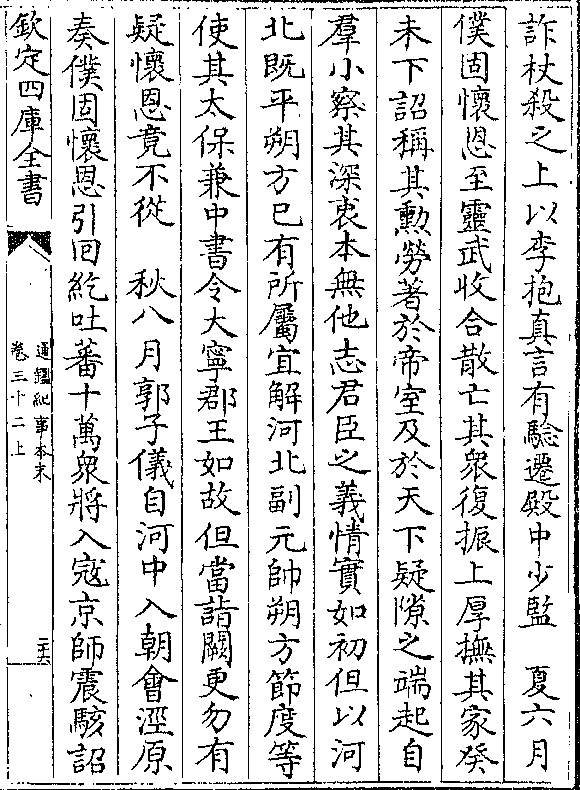 詐杖殺之上以李抱真言有驗遷殿中少監　夏六月
僕固懷恩至靈武收合散亡其衆復振上厚撫其家癸
未下詔稱其勲勞著於帝室及於天下疑隙之端起自
羣小察其深衷本無他志君臣之義情實如初但以河
北既平朔方已有所屬宜解河北副元帥朔方節度等
使其太保兼中書令大寧郡王如故但當詣闕更勿有
疑懷恩竟不從　秋八月郭子儀自河中入朝會涇原
奏僕固懷恩引回紇吐蕃十萬衆將入寇京師震駭詔
欽定四庫全書
通鑑紀事本末
卷三十二上
二十六